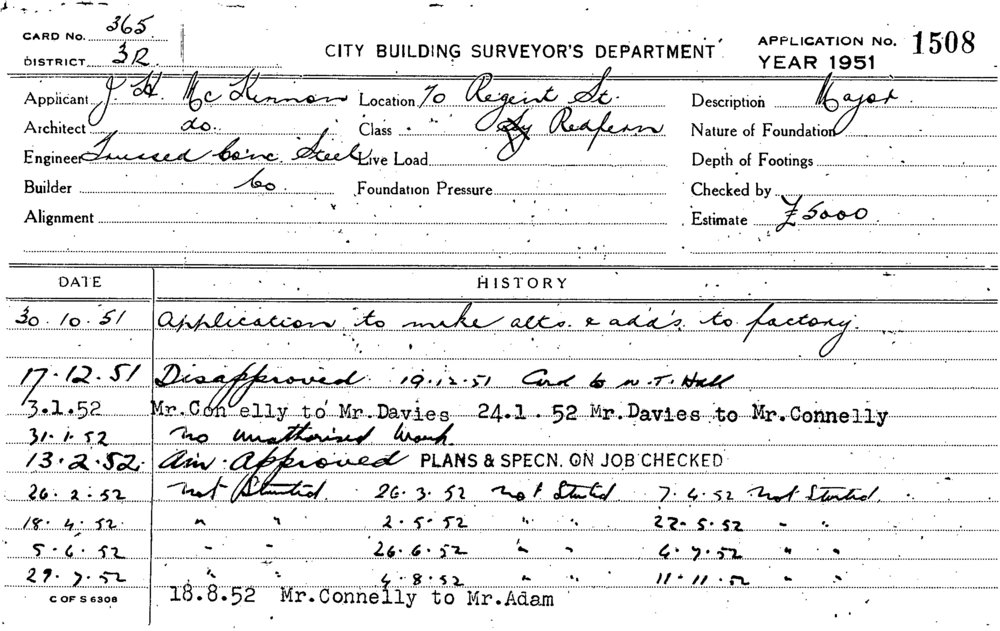 CARD No. 365
DISTRICT 3R
CITY BUILDING SURVEYOR'S DEPARTMENT
APPLICATION No. 1508
YEAR 1951
Applicant J. H. McKinnon Location 70 Regent St. Description Major
Architect do. Class Redfern Nature of Foundation
Engineer Trussed Conc. Steel Live Load Depth of Footings
Builder Co Foundation Pressure Checked by
Alignment Estimate £5000
DATE HISTORY
30.10.51 Application to make alts. & adds. to factory.
17.12.51 Disapproved 19.12.51 Card to
3.1.52 Mr.Con elly to Mr.Davies 24.1.52 Mr.Davies to Mr.Connelly
31.1.52 No unathorised Work
13.2.52. Am. Approved PLANS & SPECN. ON JOB CHECKED
26.2.52 Not Started 26.3.52 Not Started 7.4.52 Not Started
18.4.52 " " 2.5.52 " " 22.5.52 " "
5.6.52 " " 26.6.52 " " 4.7.52 " "
29.7.52 " " 4.8.52 " " 11.11.52 " "
C OF S 6308 18.8.52 Mr.Connelly to Mr.Adam